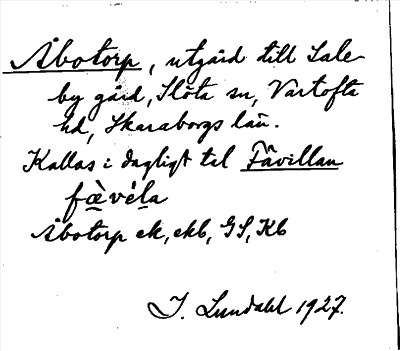 Åbotorp, utgård till Sale-
by gård, Slöta sn, Vartofta
hd, Skaraborgs län.
Kallas i dagligt tal Fåvillan
fæ̀véla
Åbotorp ek, ekb, GS, Kb
I. Lundahl 1927.